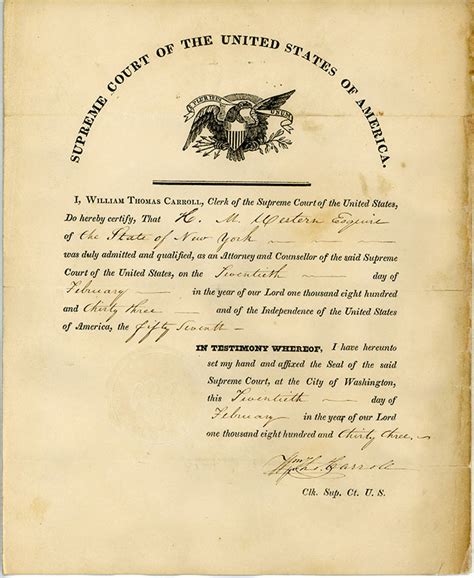 SUPREME COURT OF THE UNITED STATES OF AMERICA.
E PLURIBUS UNUM
I, WILLIAM THOMAS CARROLL, Clerk of the Supreme Court of the United States,
Do hereby certify, That H. M. Western Esquire
of the State of New York
was duly admitted and qualified, as an Attorney and Counsellor of the said Supreme
Court of the United States, on the Twentieth day of
February in the year of our Lord one thousand eight hundred
and thirty three and of the Independence of the United States
of America, the fifty seventh
IN TESTIMONY WHEREOF, I have hereunto
set my hand and affixed the Seal of the said
Supreme Court, at the City of Washington,
this Twentieth day of
February in the year of our Lord
one thousand eight hundred and thirty three.
Wm. Th. Carroll
Clk. Sup. Ct. U. S.